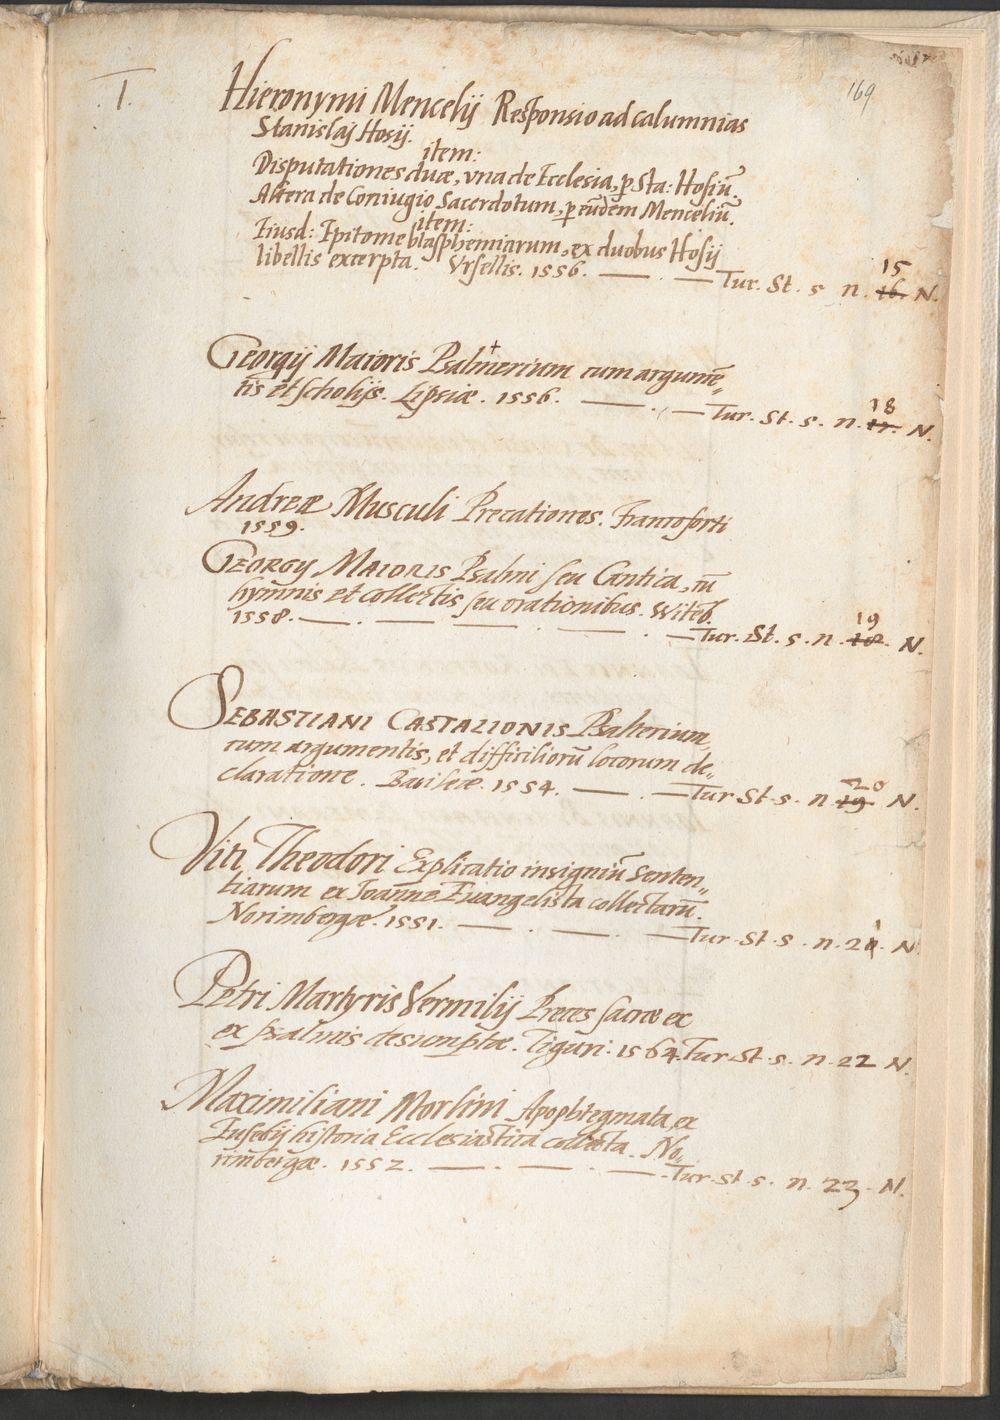 I.
169
Hieronymi Mencelij Responsio ad calumnias
Stanislaj Hosij.
item:
Disputationes duæ, vna de Ecclesia, p Sta: Hosiū.
Altera de Coniugio Sacerdotum, p eūdem Menceliū.
item:
Eiusd: Epitome blasphemiarum, ex duobus Hosij
libellis excerpta. Vrsellis. 1556. — . — Tur. St. s n. 15 16. N.
Georgij Maioris Psalmerium cum argumē„
tis et scholijs. Lipsiæ. 1556. — . — Tur. St. s. n. 18 17. N.
Andreæ Musculi Precationes. Francoforti
1559.
GEORGY MAIORIS Psalmi seu Cantica, cū
hymnis et collectis seu orationibus. Witeb.
1558. — . — — — . — Tur. St. s. n. 19 18. N.
SEBASTIANI CASTALIONIS Psalterium,
cum argumentis, et difficiliorū locorum de„
claratione. Basileæ. 1554. — . — Tur. St. s. n. 20 19 N.
Viti Theodori Explicatio insigniū senten„
tiarum ex Joanne Euangelista collectarū.
Norimbergæ. 1551. — . — . — Tur. St. s. n. 21. N
Petri Martyris Vermilij Preces sacræ ex
ex psalmis desumptæ. Tiguri. 1564. Tur. St. s. n. 22 N.
Maximiliani Morlini Apophtegmata, ex
Eusebij historia Ecclesiastica collecta. No„
rimbergæ. 1552. — . — . — . Tur. st. s. n. 23. N.